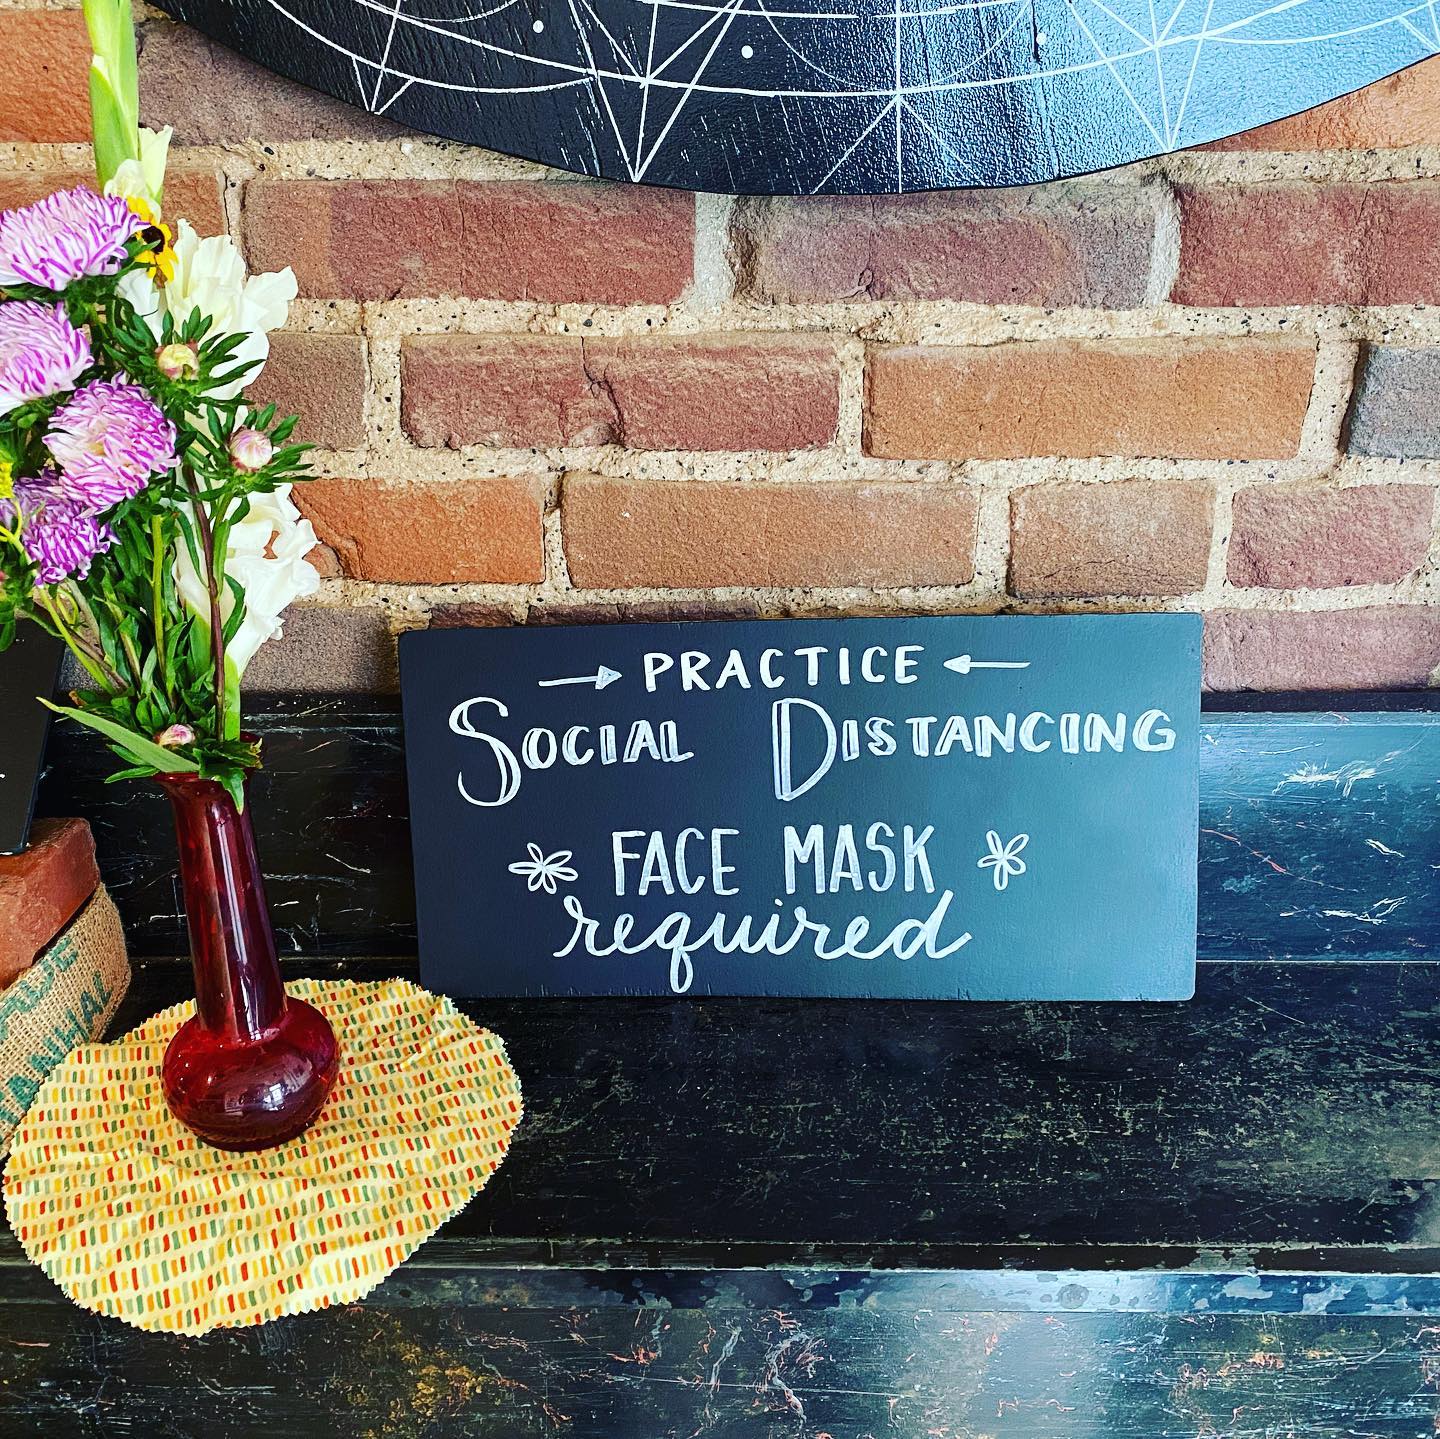 PRACTICE
SOCIAL DISTANCING
FACE MASK
required